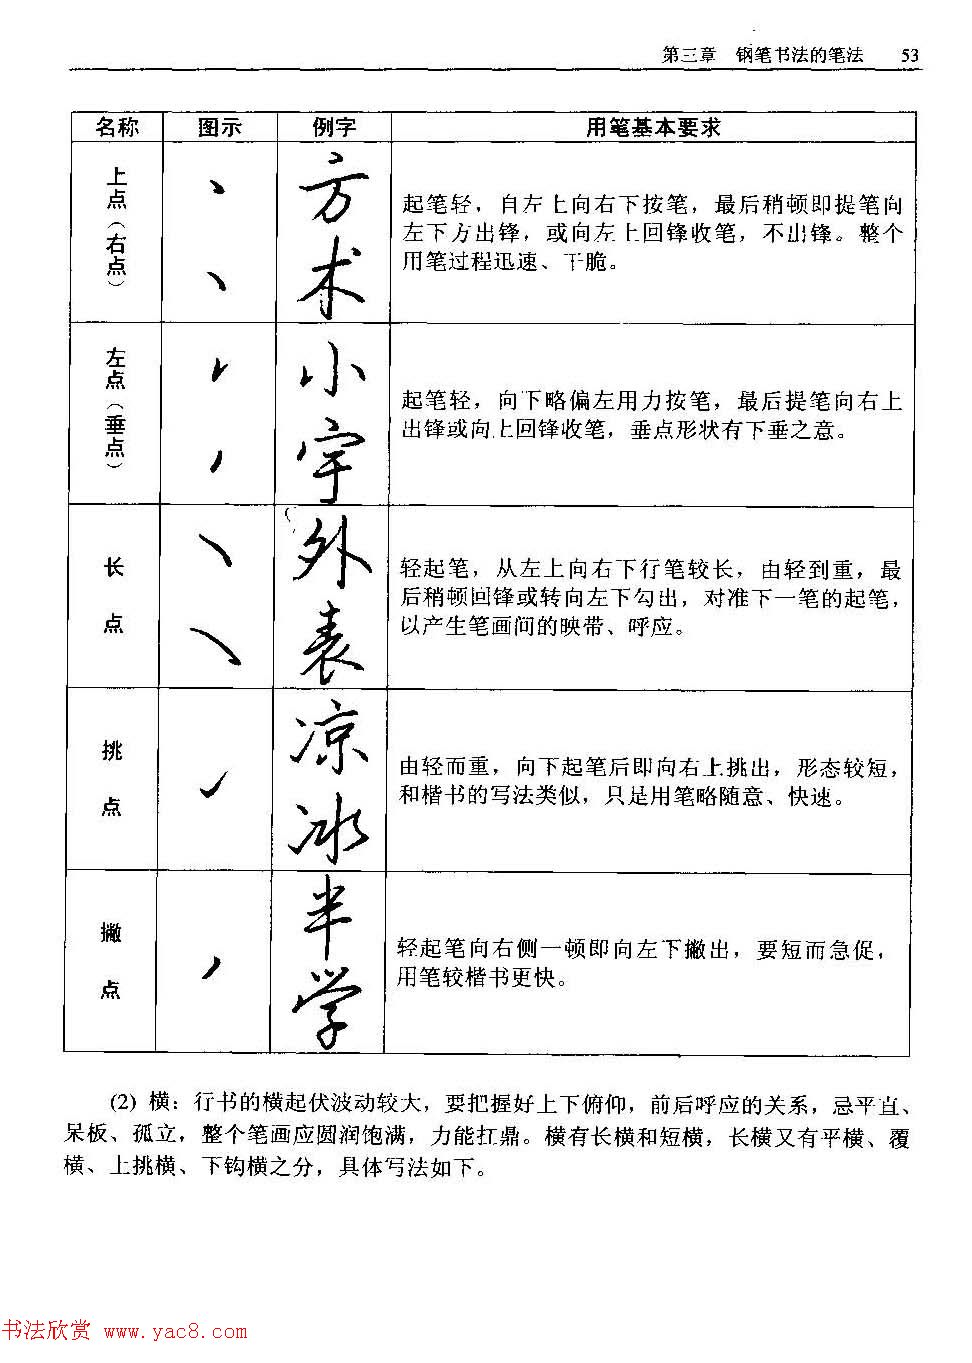 第三章 钢笔书法的笔法 53
名称 图示 例字 用笔基本要求
上点（右点）
方
术
起笔轻，自左上向右下按笔，最后稍顿即提笔向
左下方出锋，或向左上回锋收笔，不出锋。整个
用笔过程迅速、干脆。
左点（垂点）
小
宇
起笔轻，向下略偏左用力按笔，最后提笔向右上
出锋或向上回锋收笔，垂点形状有下垂之意。
长点
外
表
轻起笔，从左上向右下行笔较长，由轻到重，最
后稍顿回锋或转向左下勾出，对准下一笔的起笔，
以产生笔画间的映带、呼应。
挑点
凉
冰
由轻而重，向下起笔后即向右上挑出，形态较短，
和楷书的写法类似，只是用笔略随意、快速。
撇点
半
学
轻起笔向右侧一顿即向左下撇出，要短而急促，
用笔较楷书更快。
(2) 横：行书的横起伏波动较大，要把握好上下俯仰，前后呼应的关系，忌平直、
呆板、孤立，整个笔画应圆润饱满，力能扛鼎。横有长横和短横，长横又有平横、覆
横、上挑横、下钩横之分，具体写法如下。
书法欣赏 www.yac8.com